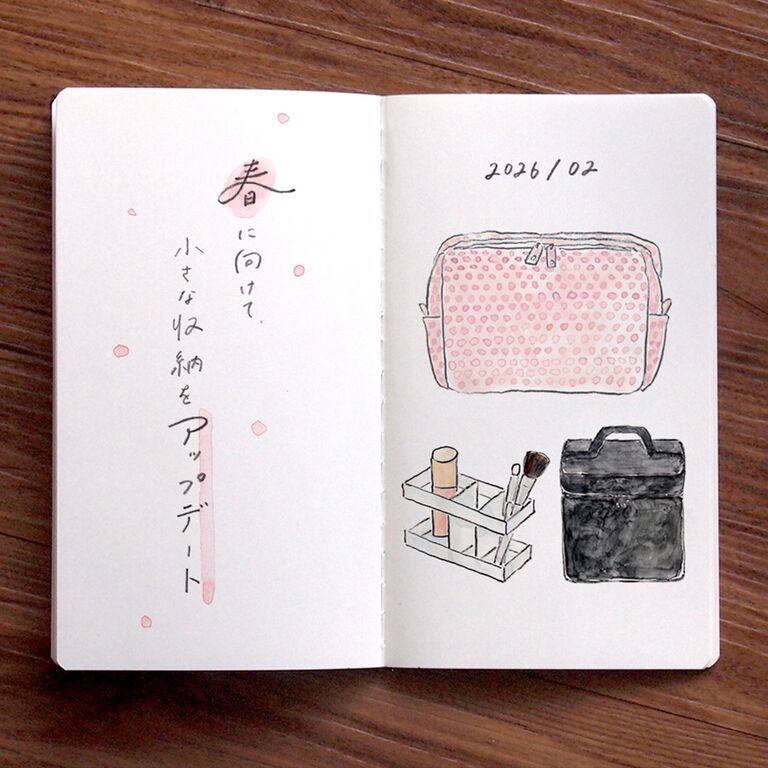 春に向けて、
小さな収納を
アップデート
2026/02